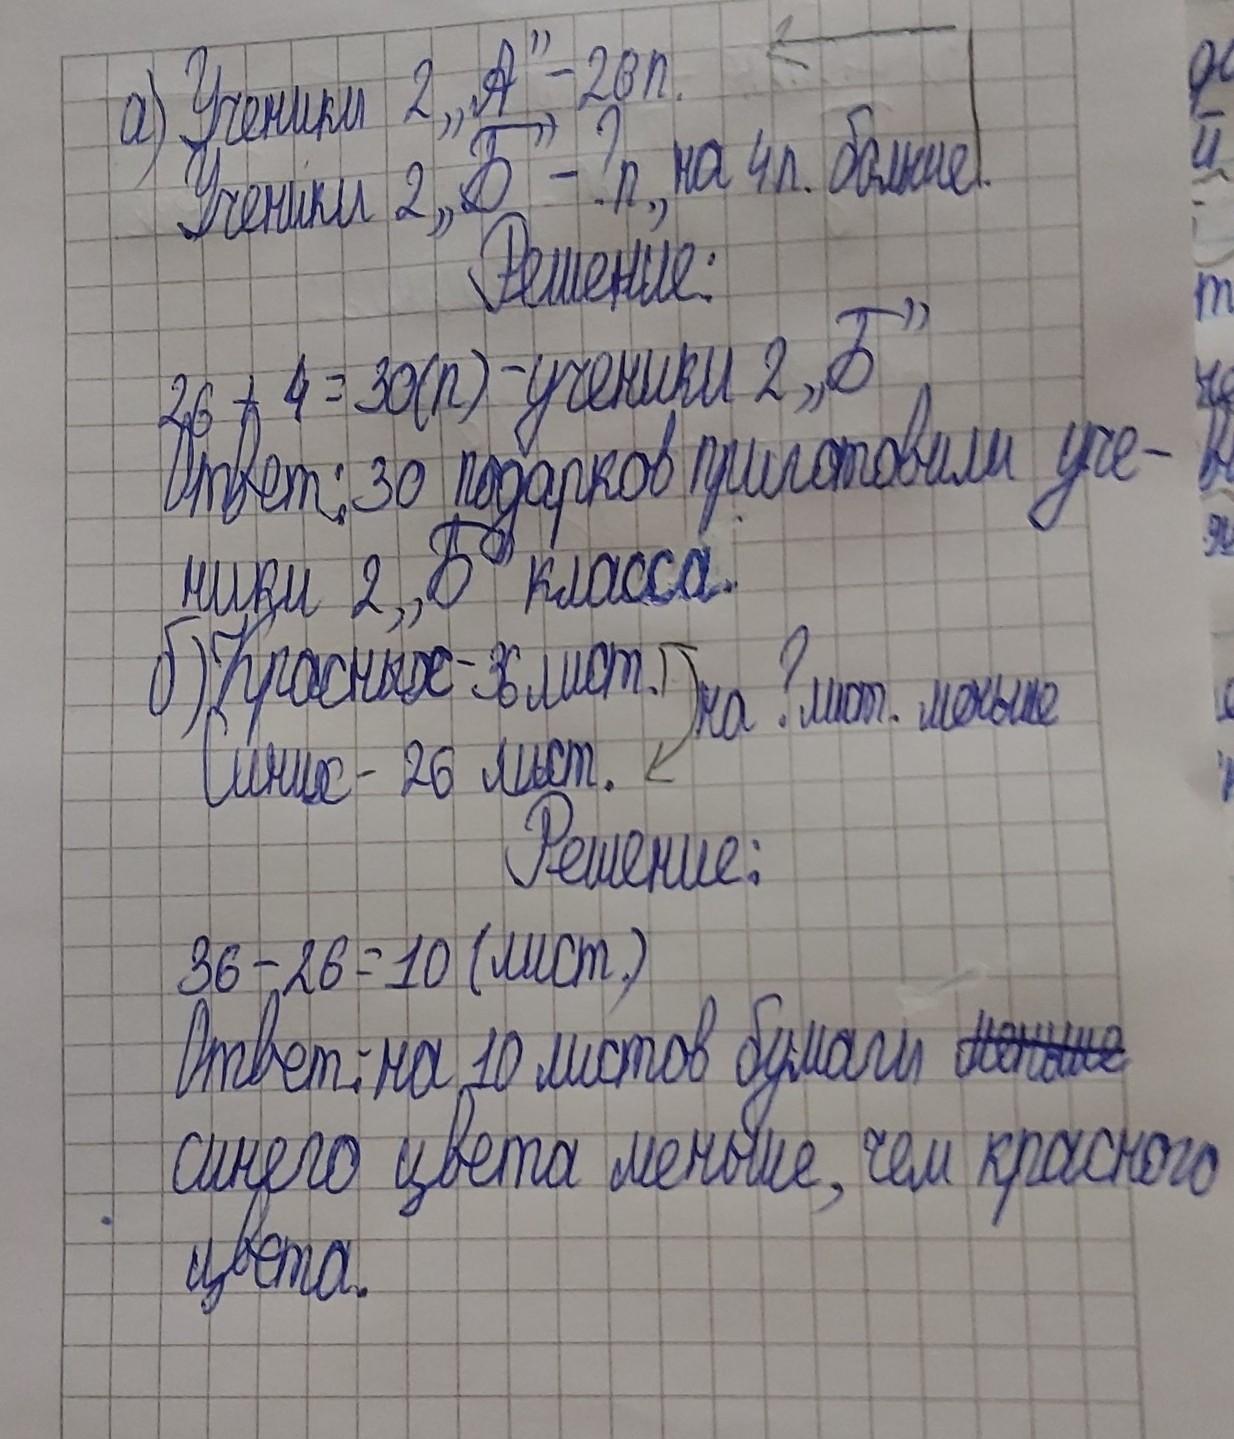 а) Ученики 2 „А” - 26 п.
Ученики 2 „Б” - ? п., на 4 п. больше.
Решение:
26 + 4 = 30 (п) - ученики 2 „Б”
Ответ: 30 подарков приготовили уче-
ники 2 „Б” класса.
б) Красных - 36 лист. на ? лист. меньше
Синих - 26 лист.
Решение:
36 - 26 = 10 (лист.)
Ответ: на 10 листов бумаги меньше
синего цвета меньше, чем красного
цвета.